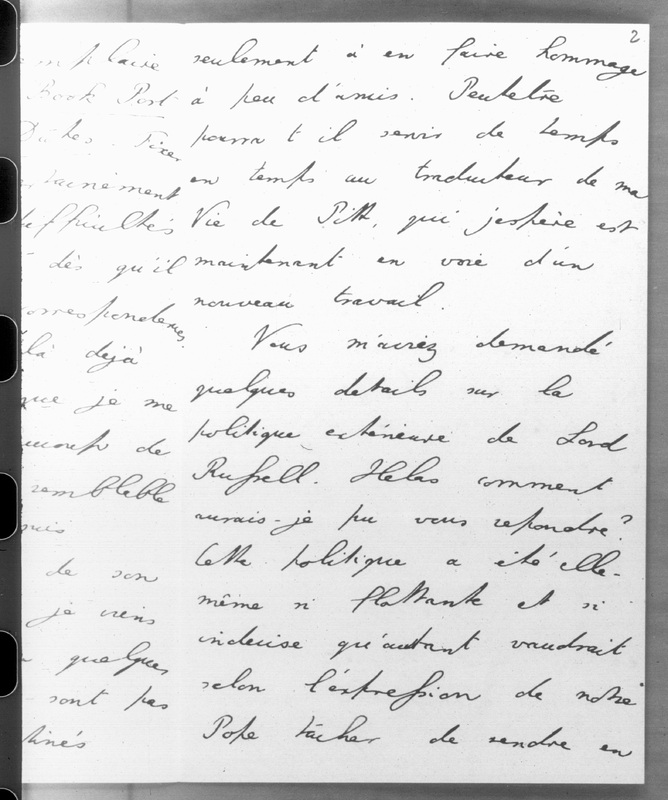 2
seulement à en faire hommage
à peu d'amis. Peutetre
pourra t il servir de temps
en temps au traducteur de ma
Vie de Pitt, qui j'espère est
maintenant en voie d'un
nouveau travail.
Vous m'aviez demandé
quelques details sur la
politique extérieure de Lord
Russell. Helas comment
aurais-je pu vous repondre?
Cette politique a été elle-
même si flottante et si
indecise qu'autant vaudrait
selon l'expression de notre
Pope tâcher de rendre en
mplaire
Book Post
Fixer
tainement
ifficultés
dès qu'il
orrespondences
là déjà
que je me
aucoup de
semblable
puis
de son
je viens
quelques
sont pas
tinés